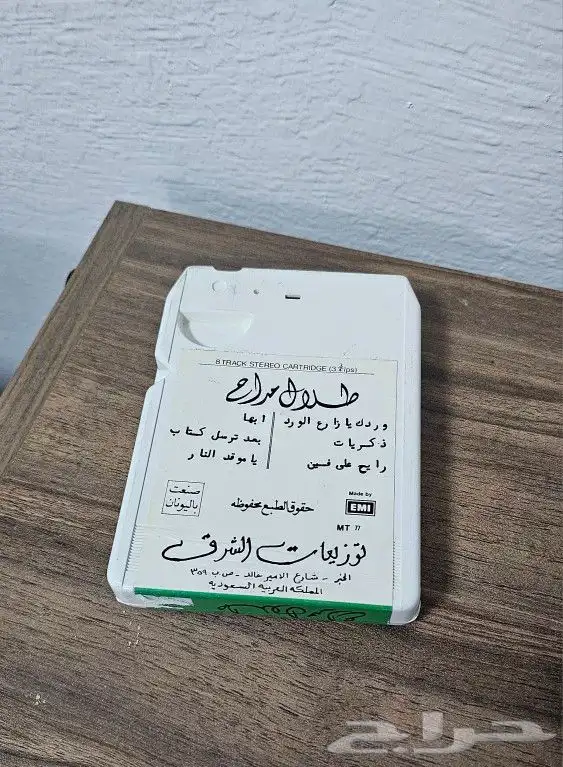 8 TRACK STEREO CARTRIDGE (3¾ips)
طلال مداح
وردك يا زارع الورد
ذكريات
رايح على فين
ابها
بعد ترسل كتاب
يا موقد النار
صنعت
باليونان
حقوق الطبع محفوظه
Made by
EMI
MT 77
توزيعات الشرق
الخبر - شارع الامير خالد - ص ب ٣٥٩
المملكه العربيه السعوديه
حراج